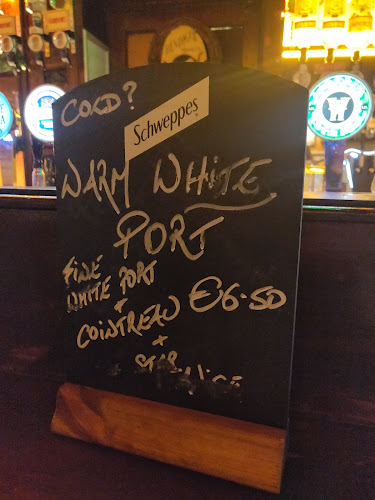 COLD?
Schweppes
WARM WHITE
PORT
FINE
WHITE PORT
+
COINTREAU €6.50
+
STAR
ANISE